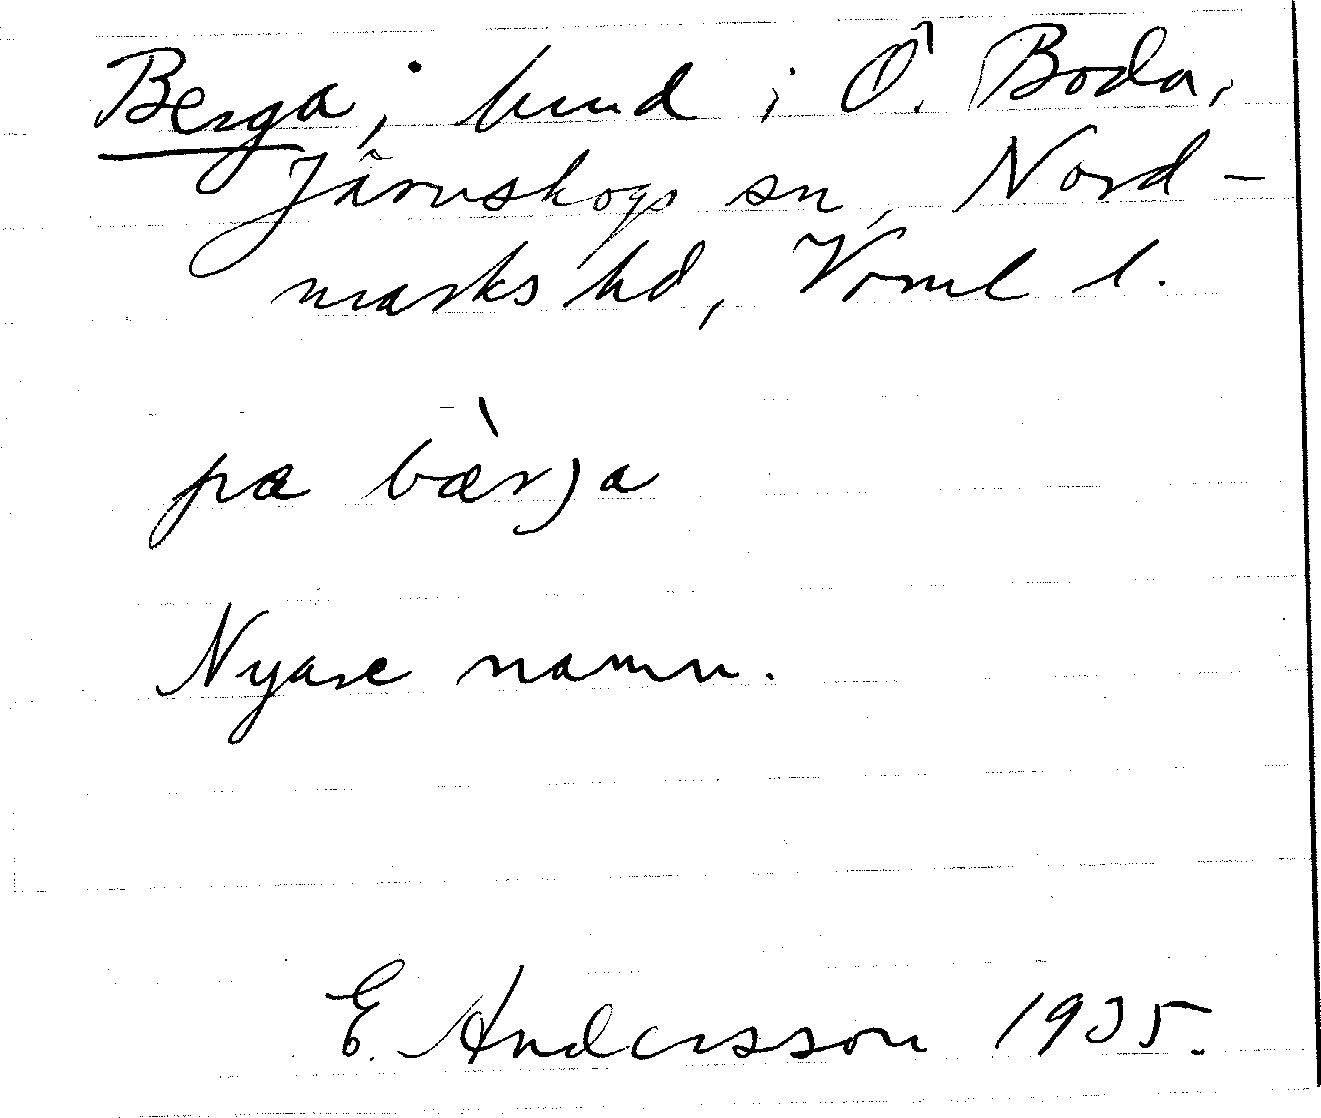 Berga, hmd i Ö. Boda,
Järnskogs sn, Nord-
marks hd, Vrml l.
pa bæ̀rja
Nyare namn.
E. Andersson 1935.